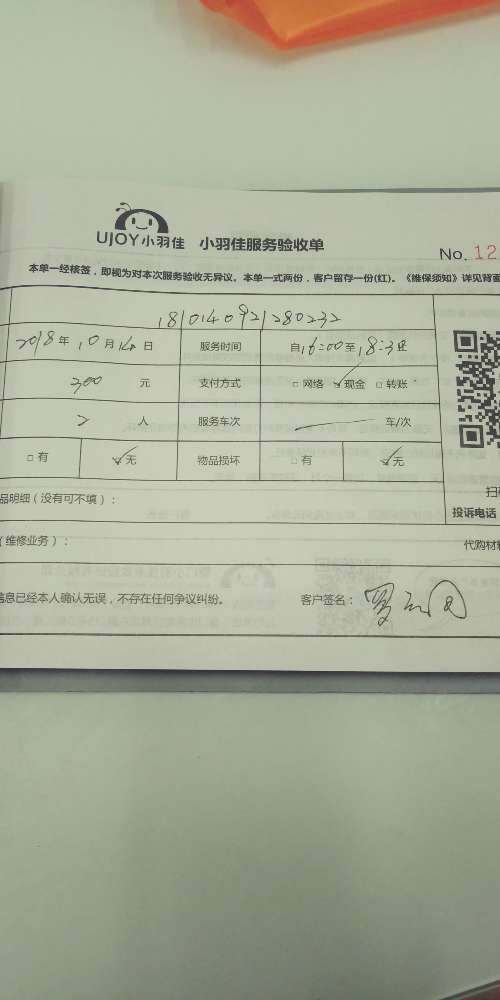 UJOY小羽佳 小羽佳服务验收单
No. 12
本单一经核签，即视为对本次服务验收无异议。本单一式两份，客户留存一份(红)。《维保须知》详见背面
1810140921280232
2018年10月14日 服务时间 自16:00至18:30止
300 元 支付方式 □网络 ✓现金 □转账
2 人 服务车次 车/次
□有 ✓无 物品损坏 □有 ✓无
品明细（没有可不填）： 投诉电话
（维修业务）： 代购材料
信息已经本人确认无误，不存在任何争议纠纷。 客户签名：